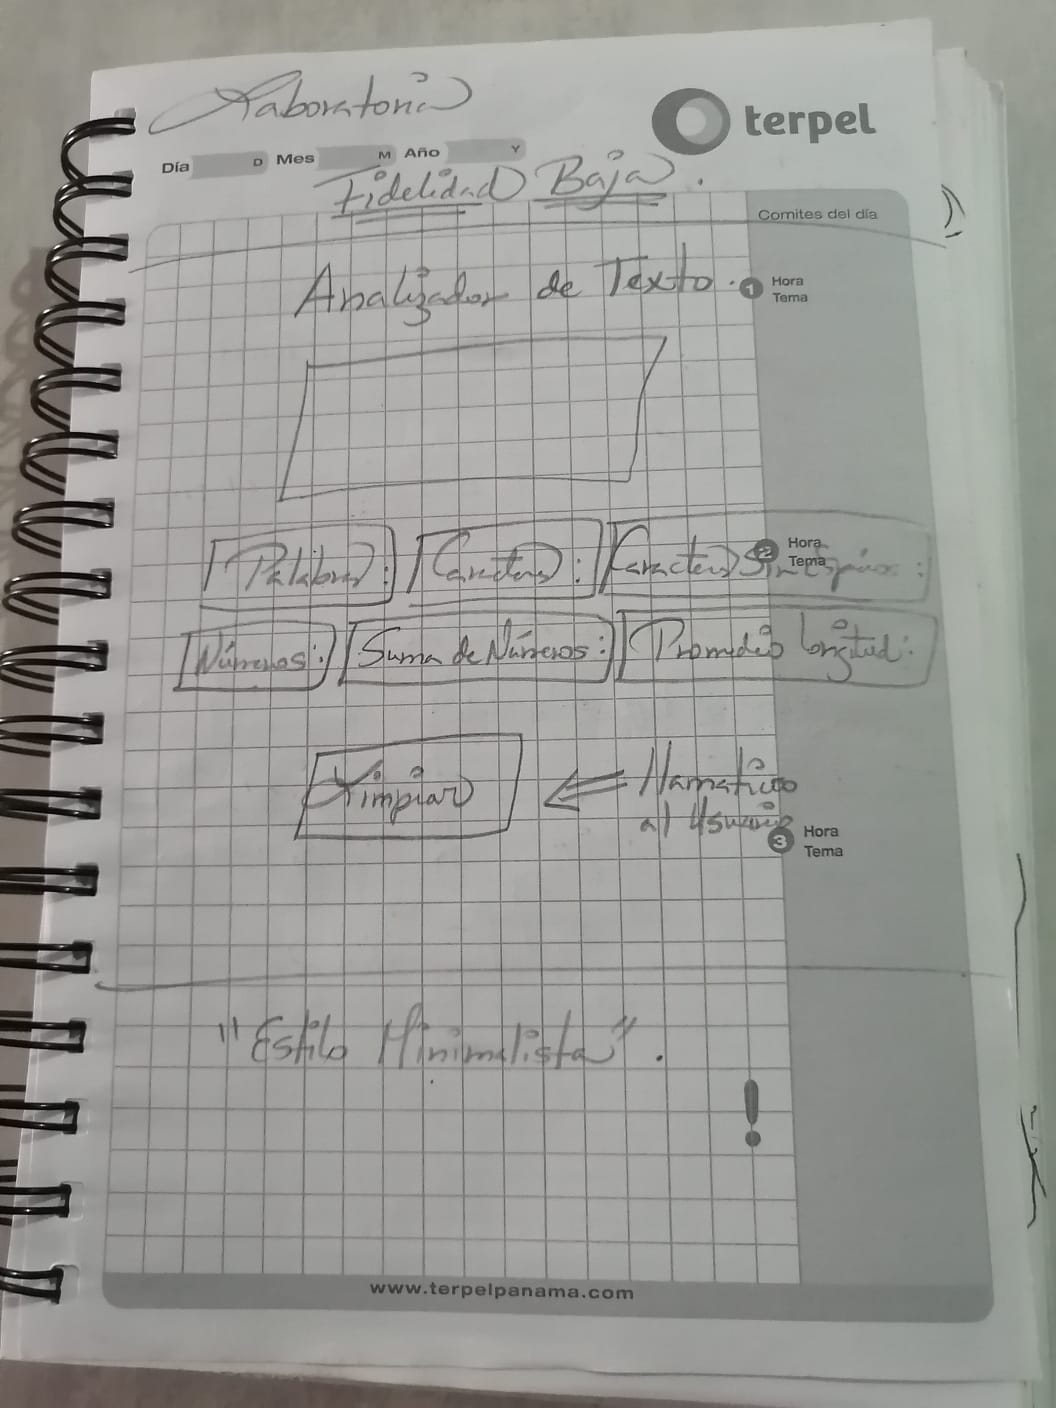 Laboratorio
terpel
Día D Mes M Año Y
Fidelidad Baja.
Comites del día
Analizador de Texto.
1 Hora
Tema
Palabras: Caracteres: Caracteres Sin Espacios:
2 Hora
Tema
Números: Suma de Números: Promedio longitud:
Limpiar
Llamativo
al Usuario
3 Hora
Tema
"Estilo Minimalista".
!
www.terpelpanama.com